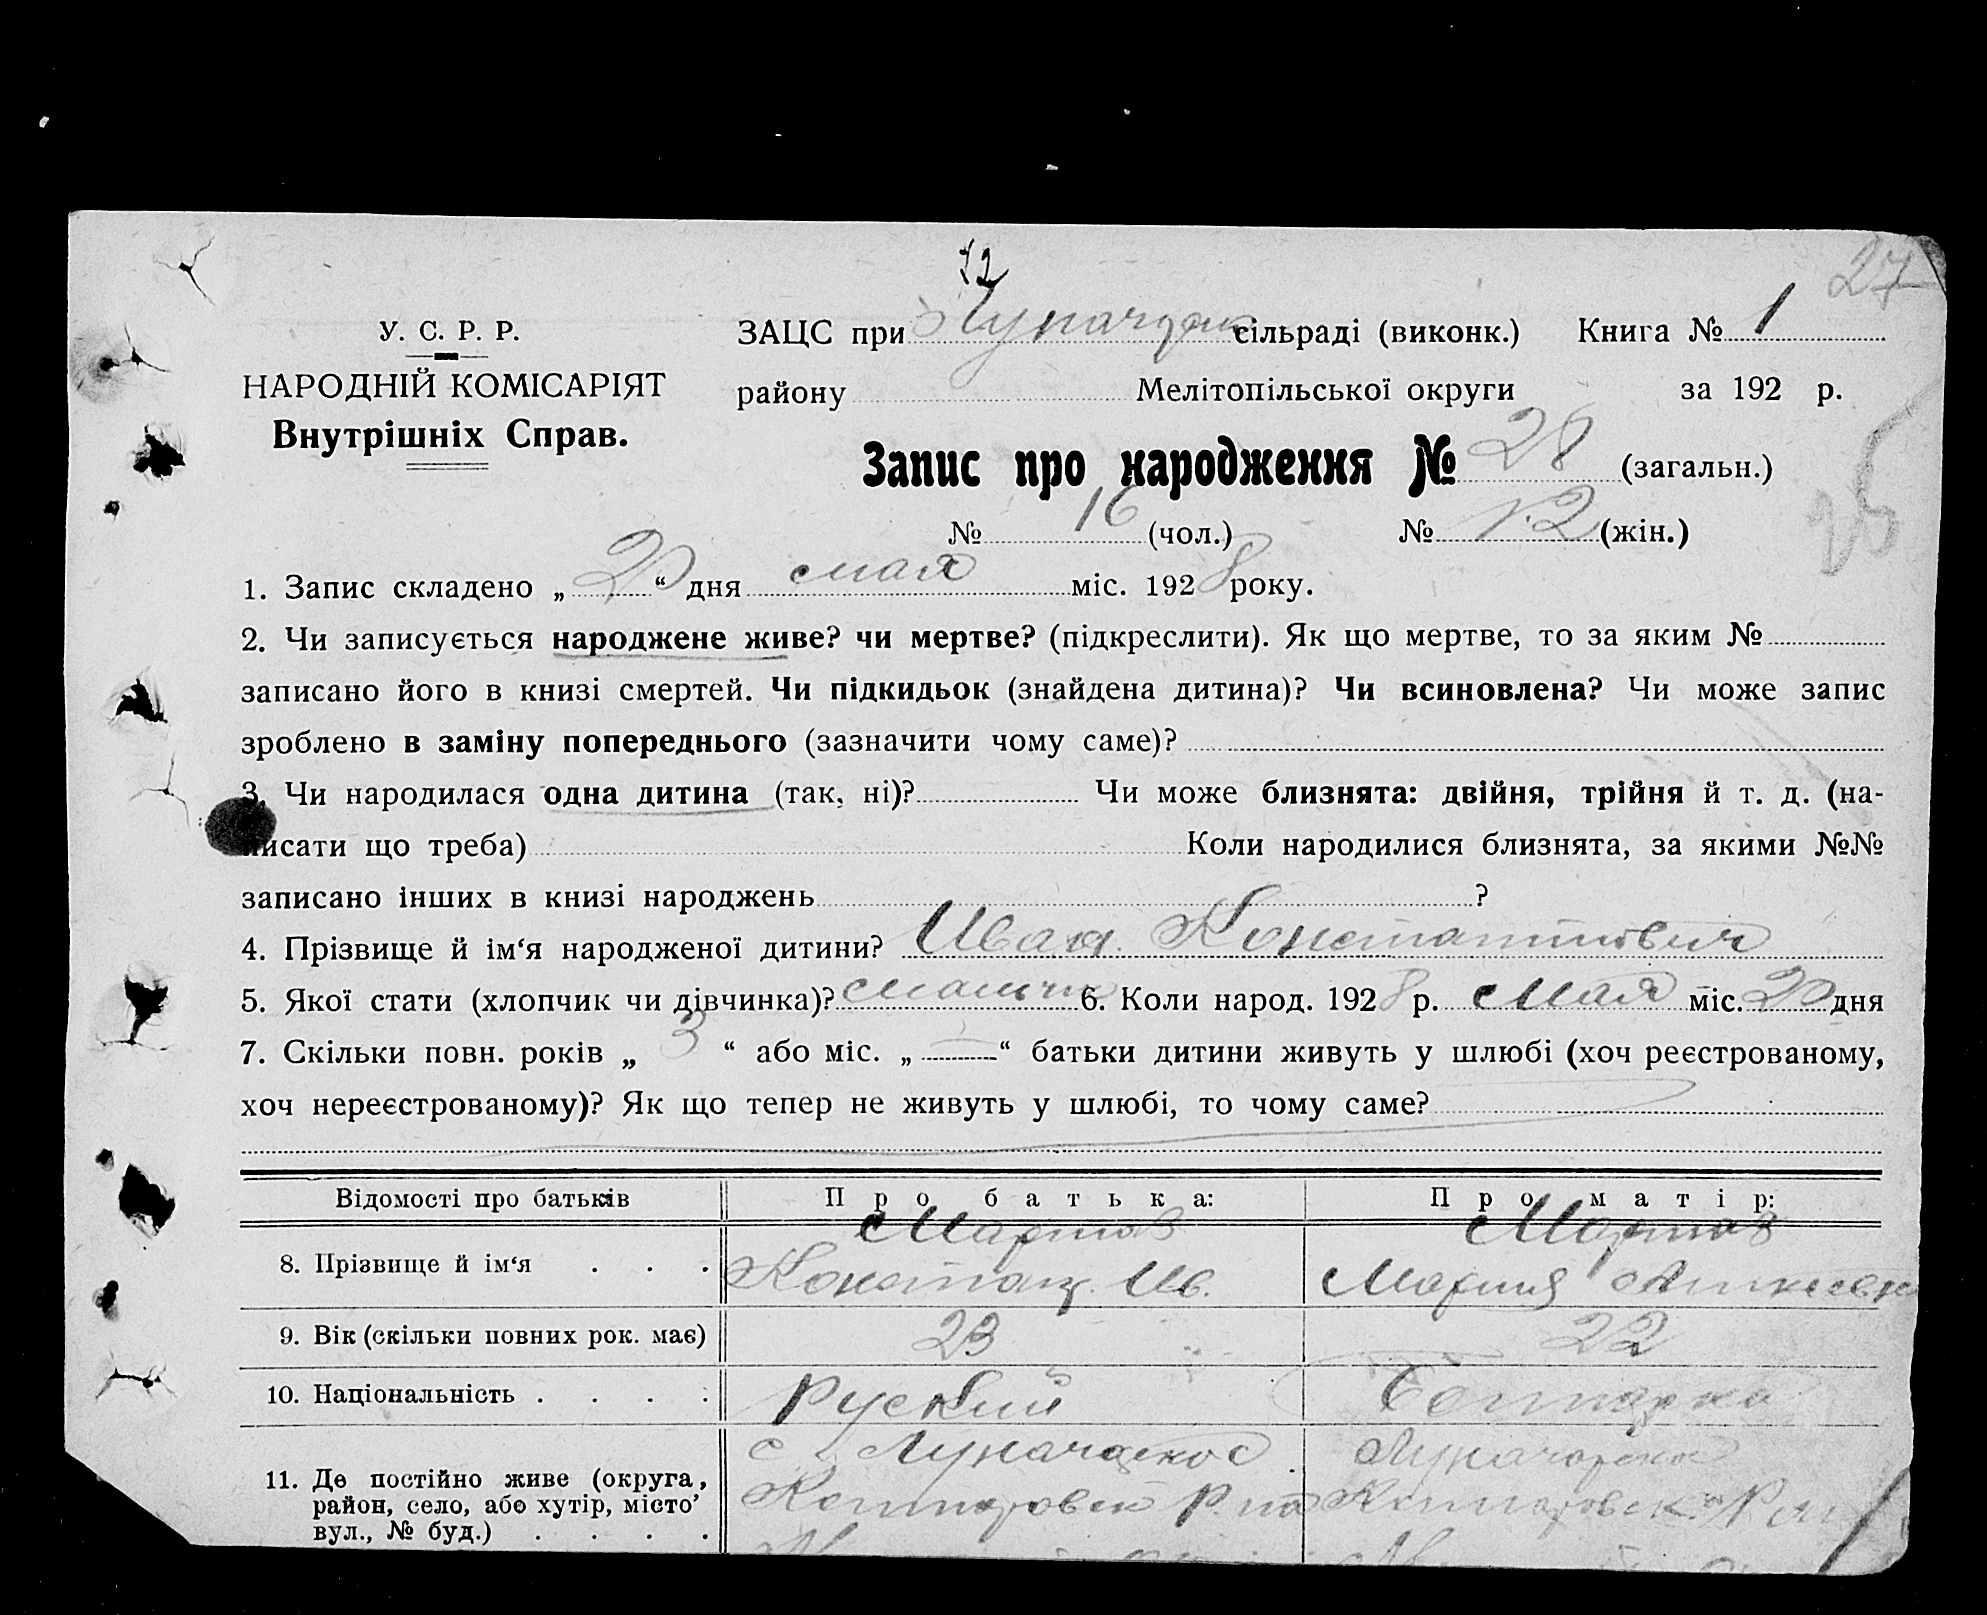 12
27
У. С. Р. Р.
ЗАЦС при Луначарск сільраді (виконк.) Книга № 1
НАРОДНІЙ КОМІСАРІЯТ
району Мелітопільської округи за 192 р.
Внутрішніх Справ.
Запис про народження № 28 (загальн.)
№ 16 (чол.) № 12 (жін.)
1. Запис складено „ 20 “ дня мая міс. 1928 року.
2. Чи записується народжене живе? чи мертве? (підкреслити). Як що мертве, то за яким №
записано його в книзі смертей. Чи підкидьок (знайдена дитина)? Чи всиновлена? Чи може запис
зроблено в заміну попереднього (зазначити чому саме)?
3. Чи народилася одна дитина (так, ні)? Чи може близнята: двійня, трійня й т. д. (на-
писати що треба) Коли народилися близнята, за якими №№
записано інших в книзі народжень ?
4. Прізвище й ім‘я народженої дитини? Иван Константинович
5. Якої стати (хлопчик чи дівчинка)? мальчик 6. Коли народ. 1928 р. мая міс. 20 дня
7. Скільки повн. років „ 3 “ або міс. „ — “ батьки дитини живуть у шлюбі (хоч реєстрованому,
хоч нереєстрованому)? Як що тепер не живуть у шлюбі, то чому саме?
Відомості про батьків Про батька: Про матір:
8. Прізвище й ім‘я . . . Мартов Констан. Ив. Мартов Мария
9. Вік (скільки повних рок. має) 23 22
10. Національність . . . . Руский Болгарка
11. Де постійно живе (округа, с. Луначарское Луначарское
район, село, або хутір, місто’
вул., № буд.) . . . .